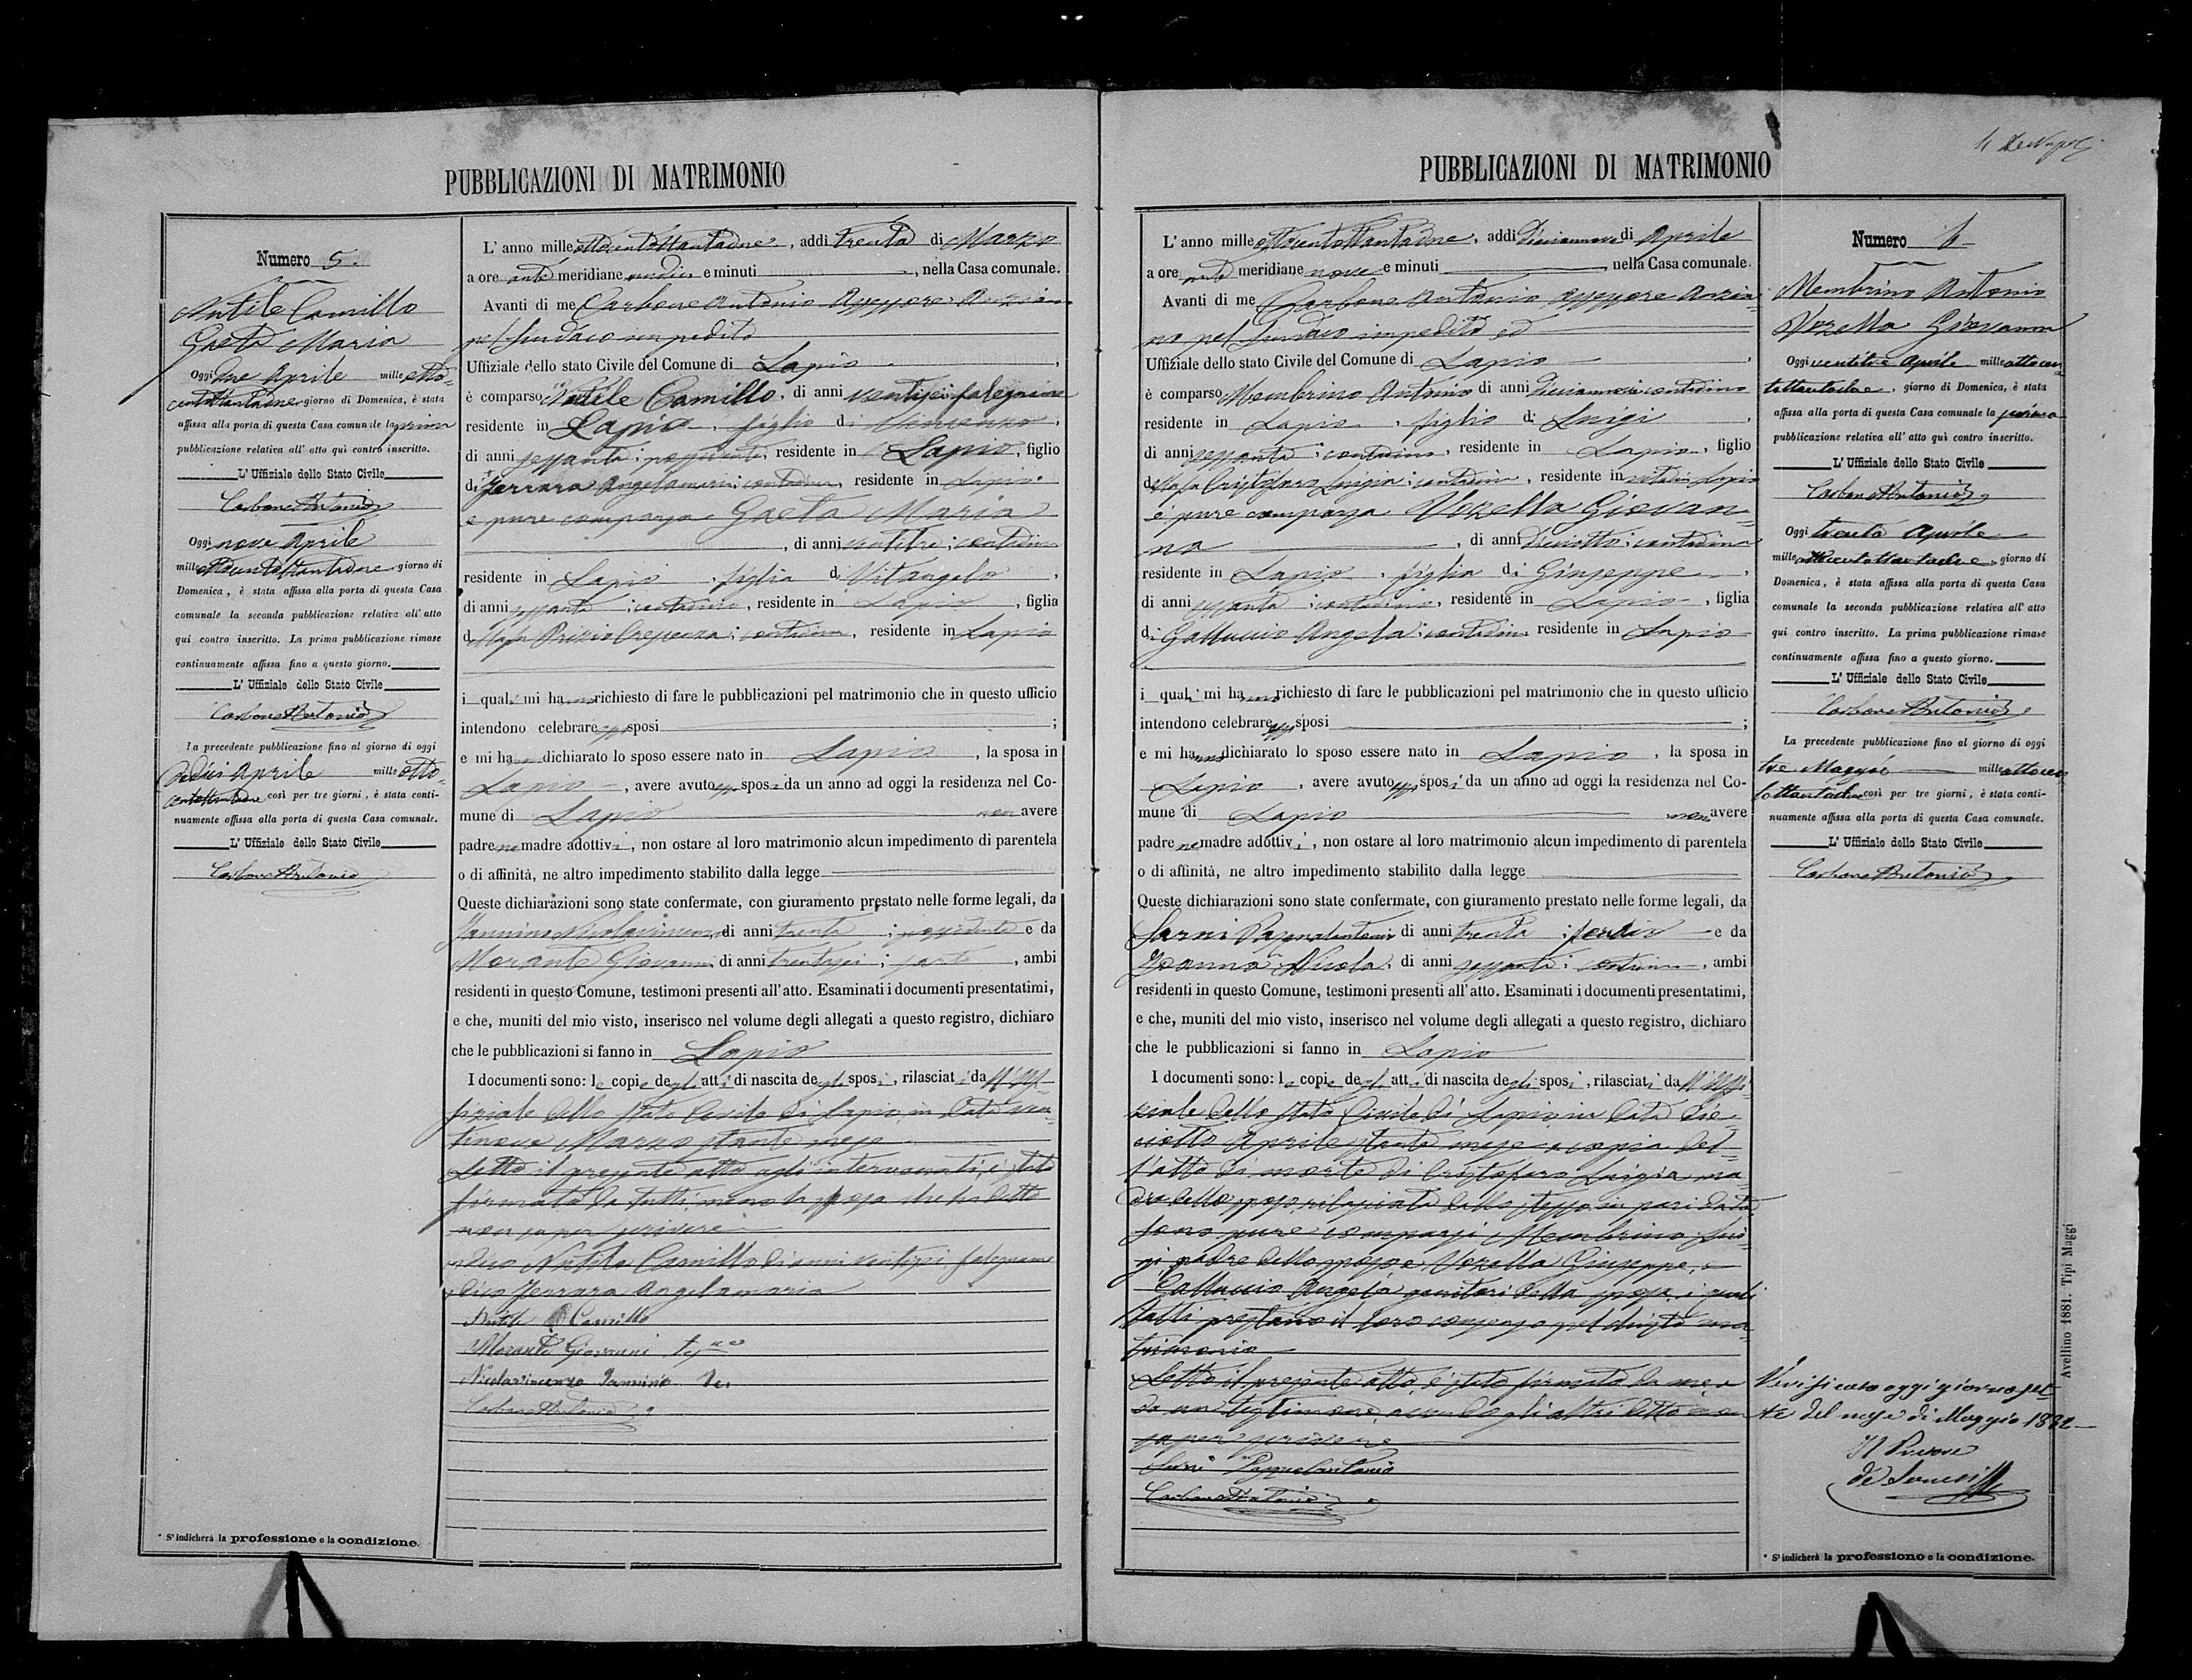 PUBBLICAZIONI DI MATRIMONIO
Numero 5.
Nutile Camillo
Gaeta Maria
Oggi due Aprile mille otto-
centottantadue, giorno di Domenica, è stata
affissa alla porta di questa Casa comunale la prima
pubblicazione relativa all' atto quì contro inscritto.
L' Uffiziale dello Stato Civile
Carbone Antonio
Oggi nove Aprile
mille ottocentottantadue, giorno di
Domenica, è stata affissa alla porta di questa Casa
comunale la seconda pubblicazione relativa all' atto
qui contro inscritto. La prima pubblicazione rimase
continuamente affissa fino a questo giorno.
L' Uffiziale dello Stato Civile
Carbone Antonio
La precedente pubblicazione fino al giorno di oggi
dodici Aprile mille otto-
centottantadue così per tre giorni, è stata conti-
nuamente affissa alla porta di questa Casa comunale.
L' Uffiziale dello Stato Civile
Carbone Antonio
* S'indicherà la professione o la condizione.
L' anno mille ottocentottantadue, addì trenta di Marzo
a ore ante meridiane undici e minuti , nella Casa comunale.
Avanti di me Carbone Antonio Assessore Anziano
pel Sindaco impedito
Uffiziale dello stato Civile del Comune di Lapio ,
è comparso Nutile Camillo, di anni ventisei falegname
residente in Lapio, figlio di Vincenzo,
di anni sessanta; possidente, residente in Lapio, figlio
di Ferrara Angelamaria; contadina, residente in Lapio.
è pure comparsa Gaeta Maria
, di anni ventitre; contadina
residente in Lapio, figlia di Vitangelo,
di anni sessanta; contadino, residente in Lapio, figlia
di Prizio Crescenza; contadina, residente in Lapio
i quali mi hanno richiesto di fare le pubblicazioni pel matrimonio che in questo ufficio
intendono celebrare essi sposi ;
e mi hanno dichiarato lo sposo essere nato in Lapio, la sposa in
Lapio, avere avuto essi sposi da un anno ad oggi la residenza nel Co-
mune di Lapio non avere
padre ne madre adottivi, non ostare al loro matrimonio alcun impedimento di parentela
o di affinità, ne altro impedimento stabilito dalla legge
Queste dichiarazioni sono state confermate, con giuramento prestato nelle forme legali, da
Iannino Nicolavincenzo di anni trenta; possidente e da
Morante Giovanni di anni trentasei; sarto, ambi
residenti in questo Comune, testimoni presenti all'atto. Esaminati i documenti presentatimi,
e che, muniti del mio visto, inserisco nel volume degli allegati a questo registro, dichiaro
che le pubblicazioni si fanno in Lapio
I documenti sono: le copie degli atti di nascita degli sposi, rilasciati dall'Uf-
fiziale dello stato Civile di Lapio in data ven-
tinove Marzo stante mese
Letto il presente atto agli intervenuti, è stato
firmato da tutti meno la sposa che ha detto
non saper scrivere
dico Nutile Camillo di anni ventisei falegname
dico Ferrara Angelamaria
Nutile Camillo
Morante Giovanni
Nicolavincenzo Iannino
Carbone Antonio
PUBBLICAZIONI DI MATRIMONIO
L' anno mille ottocentottantadue, addì diciannove di Aprile
a ore ante meridiane nove e minuti , nella Casa comunale.
Avanti di me Carbone Antonio Assessore Anzia-
no pel Sindaco impedito ed
Uffiziale dello stato Civile del Comune di Lapio ,
è comparso Membrino Antonio di anni contadino
residente in Lapio, figlio di Luigi,
di anni sessanta; contadino, residente in Lapio, figlio
di Cristofaro Luigia; contadina, residente in vita in Lapio
è pure comparsa Vozella Giovan-
na , di anni diciotto; contadina
residente in Lapio, figlia di Giuseppe,
di anni sessanta; contadino, residente in Lapio, figlia
di Galluccio Angela; contadina residente in Lapio
i quali mi hanno richiesto di fare le pubblicazioni pel matrimonio che in questo ufficio
intendono celebrare essi sposi ;
e mi hanno dichiarato lo sposo essere nato in Lapio, la sposa in
Lapio, avere avuto essi sposi da un anno ad oggi la residenza nel Co-
mune di Lapio non avere
padre ne madre adottivi, non ostare al loro matrimonio alcun impedimento di parentela
o di affinità, ne altro impedimento stabilito dalla legge
Queste dichiarazioni sono state confermate, con giuramento prestato nelle forme legali, da
Sarni Pasqualantonio di anni trenta; e da
Nicola, di anni sessanta; contadino, ambi
residenti in questo Comune, testimoni presenti all'atto. Esaminati i documenti presentatimi,
e che, muniti del mio visto, inserisco nel volume degli allegati a questo registro, dichiaro
che le pubblicazioni si fanno in Lapio
I documenti sono: le copie degli atti di nascita degli sposi, rilasciati da ll'Uffi-
ziale dello stato Civile di Lapio in data die-
ciotto Aprile stante mese e copia del-
l'atto di morte di Cristofaro Luigia ma-
dre dello sposo rilasciata dallo stesso in pari data
Sono pure comparsi Membrino Lui-
gi padre dello sposo Vozella Giuseppe, e
Galluccio Angela genitori della sposa, i quali
tutti prestano il loro consenso pel divisato ma-
trimonio
Letto il presente atto, è stato firmato da me e
da un testimone, avendo gli altri detto non
saper scrivere
Sarni Pasqualantonio
Carbone Antonio
Numero 6
Membrino Antonio
Vozella Giovanna
Oggi ventitre Aprile mille ottocen-
tottantadue, giorno di Domenica, è stata
affissa alla porta di questa Casa comunale la prima
pubblicazione relativa all' atto quì contro inscritto.
L' Uffiziale dello Stato Civile
Carbone Antonio
Oggi trenta Aprile
mille ottocentottantadue, giorno di
Domenica, è stata affissa alla porta di questa Casa
comunale la seconda pubblicazione relativa all' atto
qui contro inscritto. La prima pubblicazione rimase
continuamente affissa fino a questo giorno.
L' Uffiziale dello Stato Civile
Carbone Antonio
La precedente pubblicazione fino al giorno di oggi
tre Maggio mille ottocen
tottantadue così per tre giorni, è stata conti-
nuamente affissa alla porta di questa Casa comunale.
L' Uffiziale dello Stato Civile
Carbone Antonio
Verificato oggi giorno set-
te del mese di Maggio 1882
Il Pretore
* S'indicherà la professione o la condizione.
Avellino 1881. Tipi Maggi